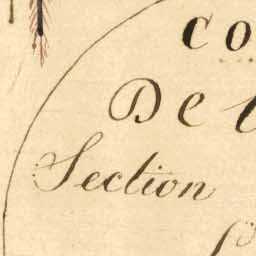 CO
De
Section